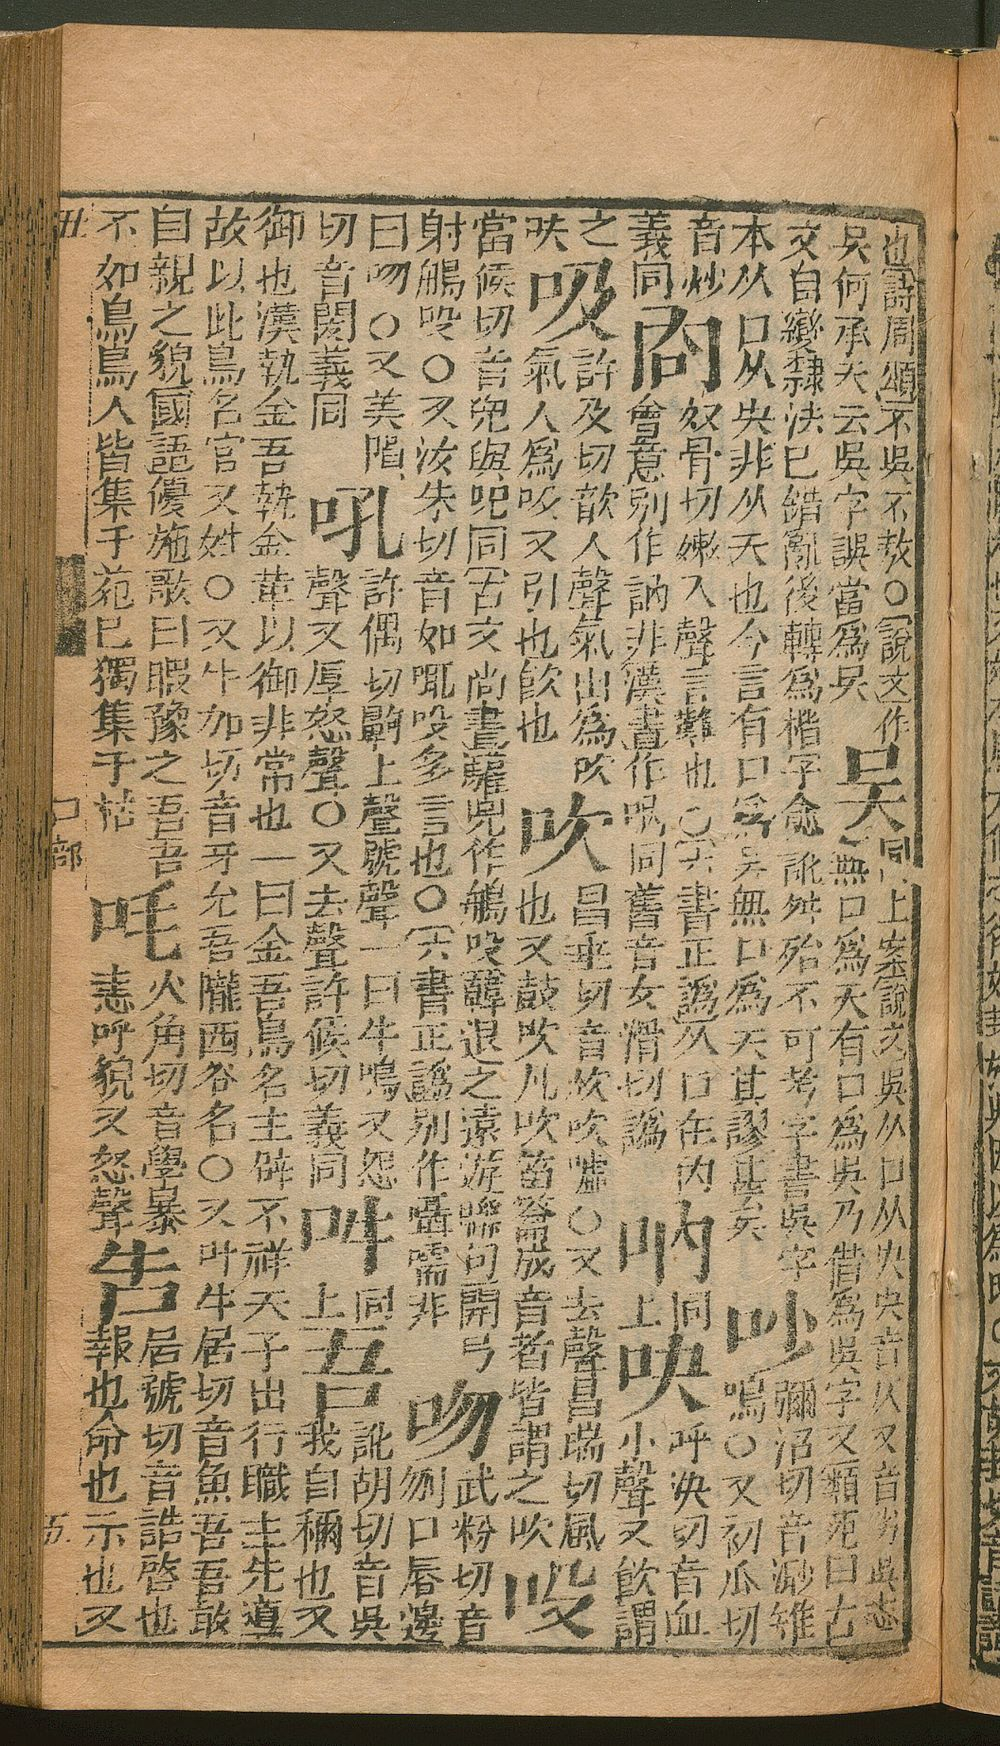 也詩周頌不吳不敖〇說文作吴同上案說文吳从口从夨夨音仄又音劣吳志
吳何承天云吳字誤當為吴無口為天有口為吳乃借為吳字又顏 曰古
文自變隷法已錯亂後轉為楷字愈訛舛殆不可考字書吳字吵彌沼切音渺雉
本从口从夨非从天也今言有口為吳無口為天其謬甚矣鳴〇又初瓜切
音炒㕯奴骨切嫩入聲言難也〇六書正譌从口在內吶同吷呼決切音血
義同會意別作訥非漢書作呐同舊音女滑切譌上小聲又飲謂
之吸許及切歙人聲氣出為吹吹昌垂切音炊吹噓〇又去聲昌瑞切風吺
吷氣入為吸又引也飲也也又鼓吹凡吹笛籥成音者皆謂之吹
當候切音兜與吺同古文尚書驩兜作鵃吺韓退之遠遊聯句開弓吻武粉切音
射鵃吺〇又汝朱切音如嚅吺多言也〇六書正譌別作囁嚅非刎口唇邊
曰吻〇又美隕吼許偶切齁上聲號聲一曰牛鳴又怨吽同吾訛胡切音吳
切音閔義同聲又厚怒聲〇又去聲許候切義同上我自稱也又
御也漢執金吾執金革以御非常也一曰金吾鳥名主辟不祥天子出行職主先導
故以此鳥名官又姓〇又牛加切音牙允吾隴西谷名〇又叶牛居切音魚吾吾敢
自親之貌國語優施歌曰暇豫之吾吾吒火角切音學暴告居號切音誥啓也
不如鳥鳥人皆集于苑已獨集于枯恚呼貌又怒聲報也命也示也又
丑 口部 五